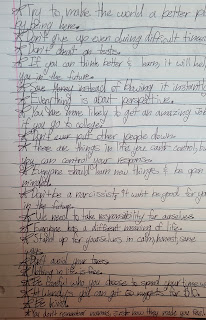 * Try to make the world a better pl
by being here.
* Don't give up even during difficult times
* Don't cheat on tests.
* If you can think better & learn, it will help
you in the future.
* Save money instead of blowing it instantly
* Everything is about perspective.
* You are more likely to get an amazing job
if you go to college
* Don't ever put other people down.
* there are things in life you can't control, b
you can control your responses.
* Everyone should learn new things & be open
minded.
* Don't be a narcissist, it won't be good for yo
in the future.
* We need to take responsibility for ourselves
* Everyone has a different meaning of life.
* Stand up for yourselves in calm, honest, sane
ways.
* and your taxes.
* Nothing in life is free.
* Be careful who you choose to spend your time w
* At Wendy's you can get 50 nuggets for $10.
* Be kind.
* You don't remember names, just how they made you feel